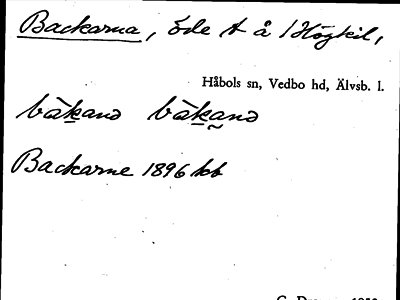 Backarna, öde t å Högkil,
Håbols sn, Vedbo hd, Älvsb. l.
bàkanə bàkanə
Backarne 1896 kb